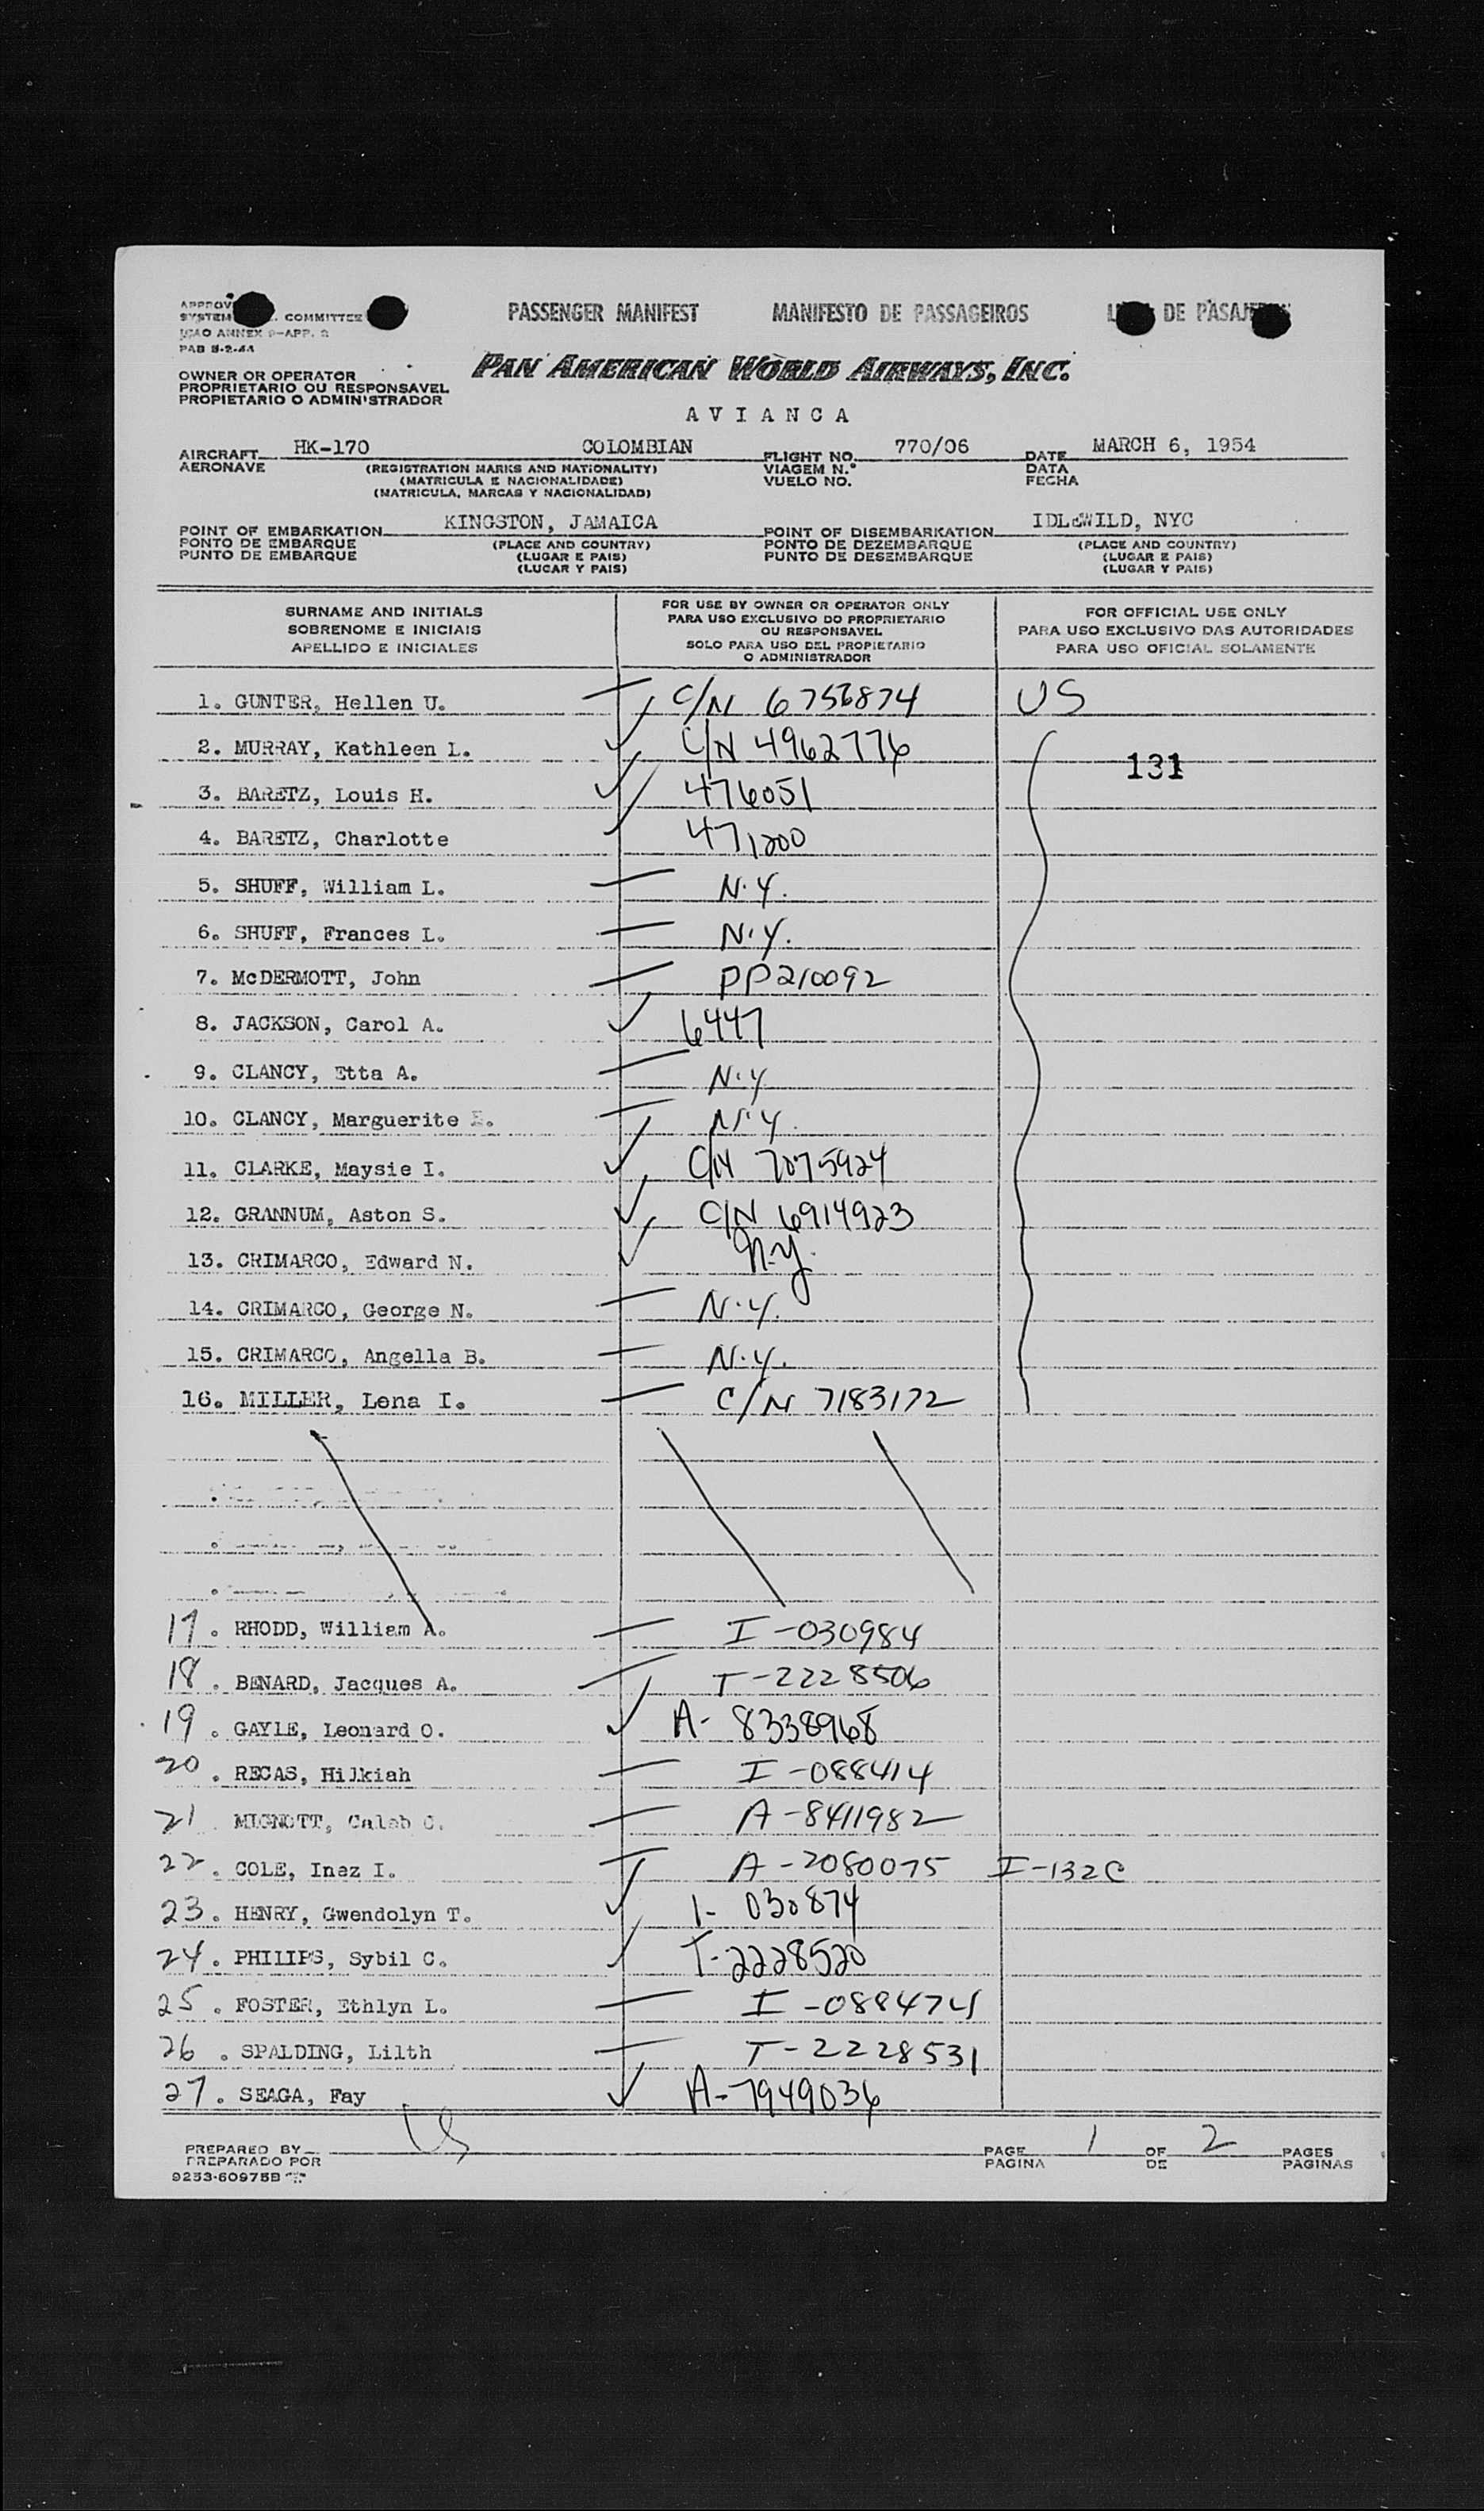 PASSENGER MANIFEST MANIFESTO DE PASSAGEIROS DE PASAJ
COMMITTEE
ICAO ANNEX 9-APP. 2
OWNER OR OPERATOR
PROPRIETARIO OU RESPONSAVEL
PROPIETARIO O ADMINISTRADOR
PAN AMERICAN WORLD AIRWAYS, INC.
AVIANCA
AIRCRAFT HK-170 COLOMBIAN FLIGHT NO. 770/06 DATE MARCH 6, 1954
AERONAVE (REGISTRATION MARKS AND NATIONALITY) VIAGEM N.° DATA
(MATRICULA E NACIONALIDADE) VUELO NO. FECHA
(MATRICULA, MARCAS Y NACIONALIDAD)
POINT OF EMBARKATION KINGSTON, JAMAICA POINT OF DISEMBARKATION IDLEWILD, NYC
PONTO DE EMBARQUE (PLACE AND COUNTRY) PONTO DE DEZEMBARQUE (PLACE AND COUNTRY)
PUNTO DE EMBARQUE (LUGAR E PAIS) PUNTO DE DESEMBARQUE (LUGAR E PAIS)
(LUGAR Y PAIS) (LUGAR Y PAIS)
SURNAME AND INITIALS FOR USE BY OWNER OR OPERATOR ONLY FOR OFFICIAL USE ONLY
SOBRENOME E INICIAIS PARA USO EXCLUSIVO DO PROPRIETARIO OU RESPONSAVEL PARA USO EXCLUSIVO DAS AUTORIDADES
APELLIDO E INICIALES SOLO PARA USO DEL PROPIETARIO O ADMINISTRADOR PARA USO OFICIAL SOLAMENTE
1. GUNTER, Hellen U. C/N 6756874 US
2. MURRAY, Kathleen L. C/N 4962776 131
3. BARETZ, Louis H. 476051
4. BARETZ, Charlotte 471200
5. SHUFF, William L. N.Y.
6. SHUFF, Frances L. N.Y.
7. McDERMOTT, John PP210092
8. JACKSON, Carol A. 6447
9. CLANCY, Etta A. N.Y
10. CLANCY, Marguerite E. N.Y.
11. CLARKE, Maysie I. C/N 7075924
12. GRANNUM, Aston S. C/N 6914923
13. CRIMARCO, Edward N. N.Y.
14. CRIMARCO, George N. N.Y.
15. CRIMARCO, Angella B. N.Y.
16. MILLER, Lena I. C/N 7183172
17. RHODD, William A. I-030984
18. BENARD, Jacques A. T-2228506
19. GAYLE, Leonard O. A-8338968
20. RECAS, Hilkiah I-088414
21 MIGNOTT, Caleb C. A-8411982
22. COLE, Inez I. A-2080075 I-132C
23. HENRY, Gwendolyn T. I-030874
24. PHILIPS, Sybil C. T-2228520
25. FOSTER, Ethlyn L. I-088474
26. SPALDING, Lilth T-2228531
27. SEAGA, Fay A-7949036
PREPARED BY PAGE 1 OF 2 PAGES
PREPARADO POR PAGINA DE PAGINAS
9253-60975B